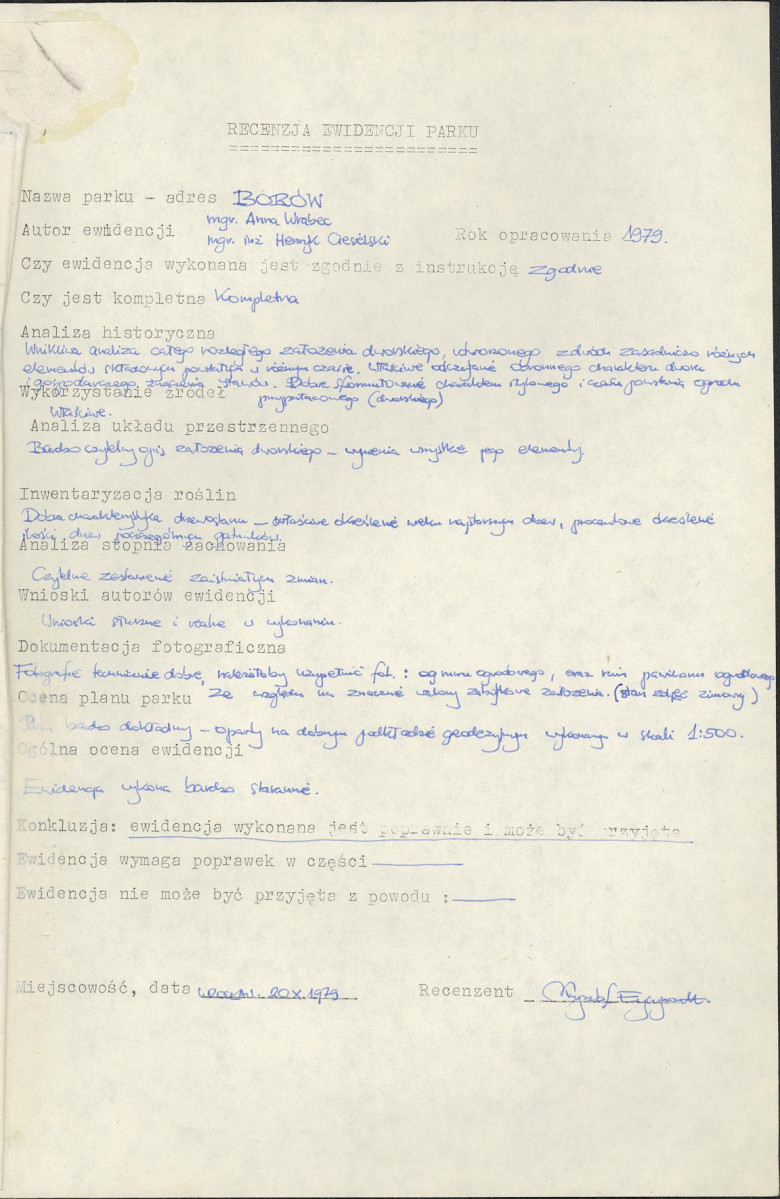 RECENZJA EWIDENCJI PARKU
========================
Nazwa parku - adres BORÓW
Autor ewidencji mgr. Anna Wrabec
mgr. inż Henryk Ciesielski Rok opracowania 1979.
Czy ewidencja wykonana jest zgodnie z instrukcją zgodnie
Czy jest kompletna Kompletna
Analiza historyczna
Wnikliwa analiza całego rozległego założenia dworskiego, utworzonego z dwóch zasadniczo różnych
elementów składowych powstałych w różnym czasie. Właściwe odczytanie obronnego charakteru dworu
i gospodarczego znaczenia stawów. Dobre sformułowanie charakteru stylowego i czasu powstania ogrodu
Wykorzystanie źródeł przypałacowego (dworskiego)
Właściwe.
Analiza układu przestrzennego
Bardzo czytelny opis założenia dworskiego - wymienia wszystkie jego elementy.
Inwentaryzacja roślin
Dobra charakterystyka drzewostanu - właściwe określenie wieku najstarszych drzew, procentowe określenie
ilości drzew poszczególnych gatunków.
Analiza stopnia zachowania
Czytelne zestawienie zaistniałych zmian.
Wnioski autorów ewidencji
Wnioski słuszne i realne w wykonaniu.
Dokumentacja fotograficzna
Fotografie technicznie dobre, należałoby uzupełnić fot.: og muru ogrodowego, oraz ruin pawilonu ogrodowego
Ocena planu parku ze względu na znaczne walory zabytkowe założenia. (stan zdjęć zimowy)
Plan bardzo dokładny - oparty na dobrym podkładzie geodezyjnym wykonanym w skali 1:500.
Ogólna ocena ewidencji
Ewidencja wykona bardzo starannie.
Konkluzja: ewidencja wykonana jest poprawnie i może być przyjęta
Ewidencja wymaga poprawek w części
Ewidencja nie może być przyjęta z powodu :
Miejscowość, data Wrocław. 20 X 1979 Recenzent